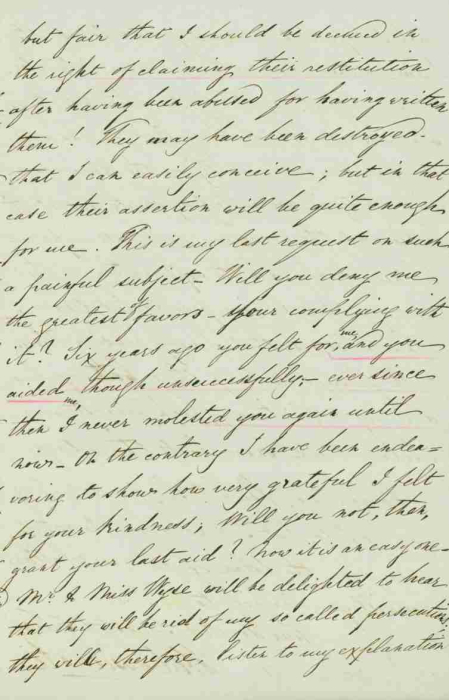 but fair that I should be deemed in
the right of claiming their restitution
after having been abused for having written
them! They may have been destroyed.
that I can easily conceive; but in that
case their assertion will be quite enough
for me. This is my last request on such
a painful subject - Will you deny me
the greatest of favors - your complying with
it? Six years ago you felt for me, and you
aided me, though unsuccessfully, - ever since
then I never molested you again until
now - On the contrary I have been endea=
voring to show how very grateful I felt
for your kindness; Will you not, then,
grant your last aid? now it is an easy one -
Mr. & Miss Wyse will be delighted to hear
that they will be rid of my so called persecutions,
they will, therefore, listen to my explanation